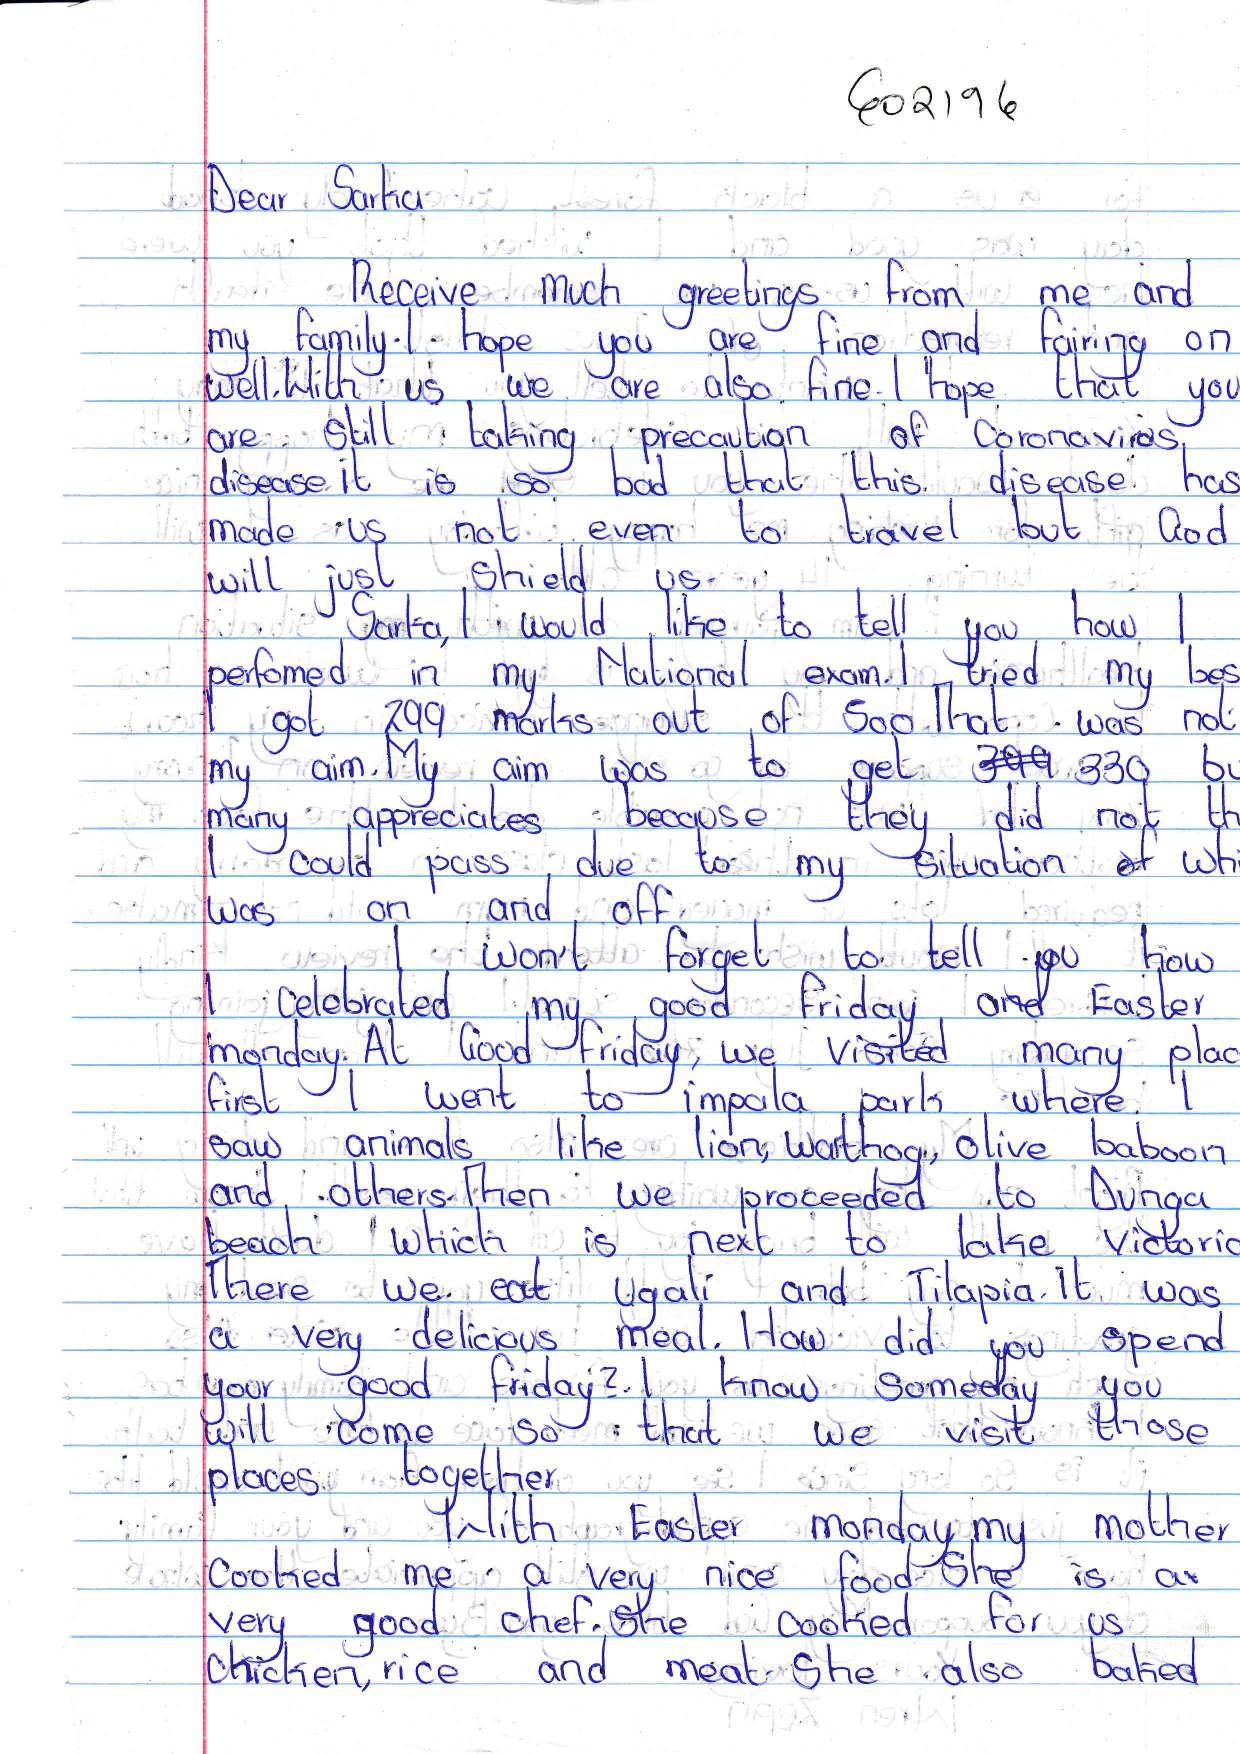 G02196
Dear Sarka
Receive much greetings from me and
my family. I hope you are fine and fairing on
well. With us we are also fine. I hope that you
are still taking precaution of Coronavirus
disease. it is so bad that this disease has
made us not even to travel but God
will just shield us.
Sarka, I would like to tell you how I
perfomed in my National exam. I tried my bes
I got 299 marks out of 500. That was not
my aim. My aim was to get 399 339 bu
many appreciates because they did not th
I could pass due to my situation of whi
was on and off.
I won't forget to tell you how
I celebrated my good friday and Easter
monday. At Good friday, we visited many plac
first I went to impala park where I
saw animals like lion, warthog, Olive baboon
and others. Then we proceeded to Dunga
beach which is next to lake Victoria
There we eat Ugali and Tilapia. It was
a very delicious meal. How did you spend
your good friday?. I know someday you
will come so that we visit those
places together
With Easter monday, my mother
Cooked me a very nice food. She is a
very good chef. She cooked for us
chicken, rice and meat. She also baked